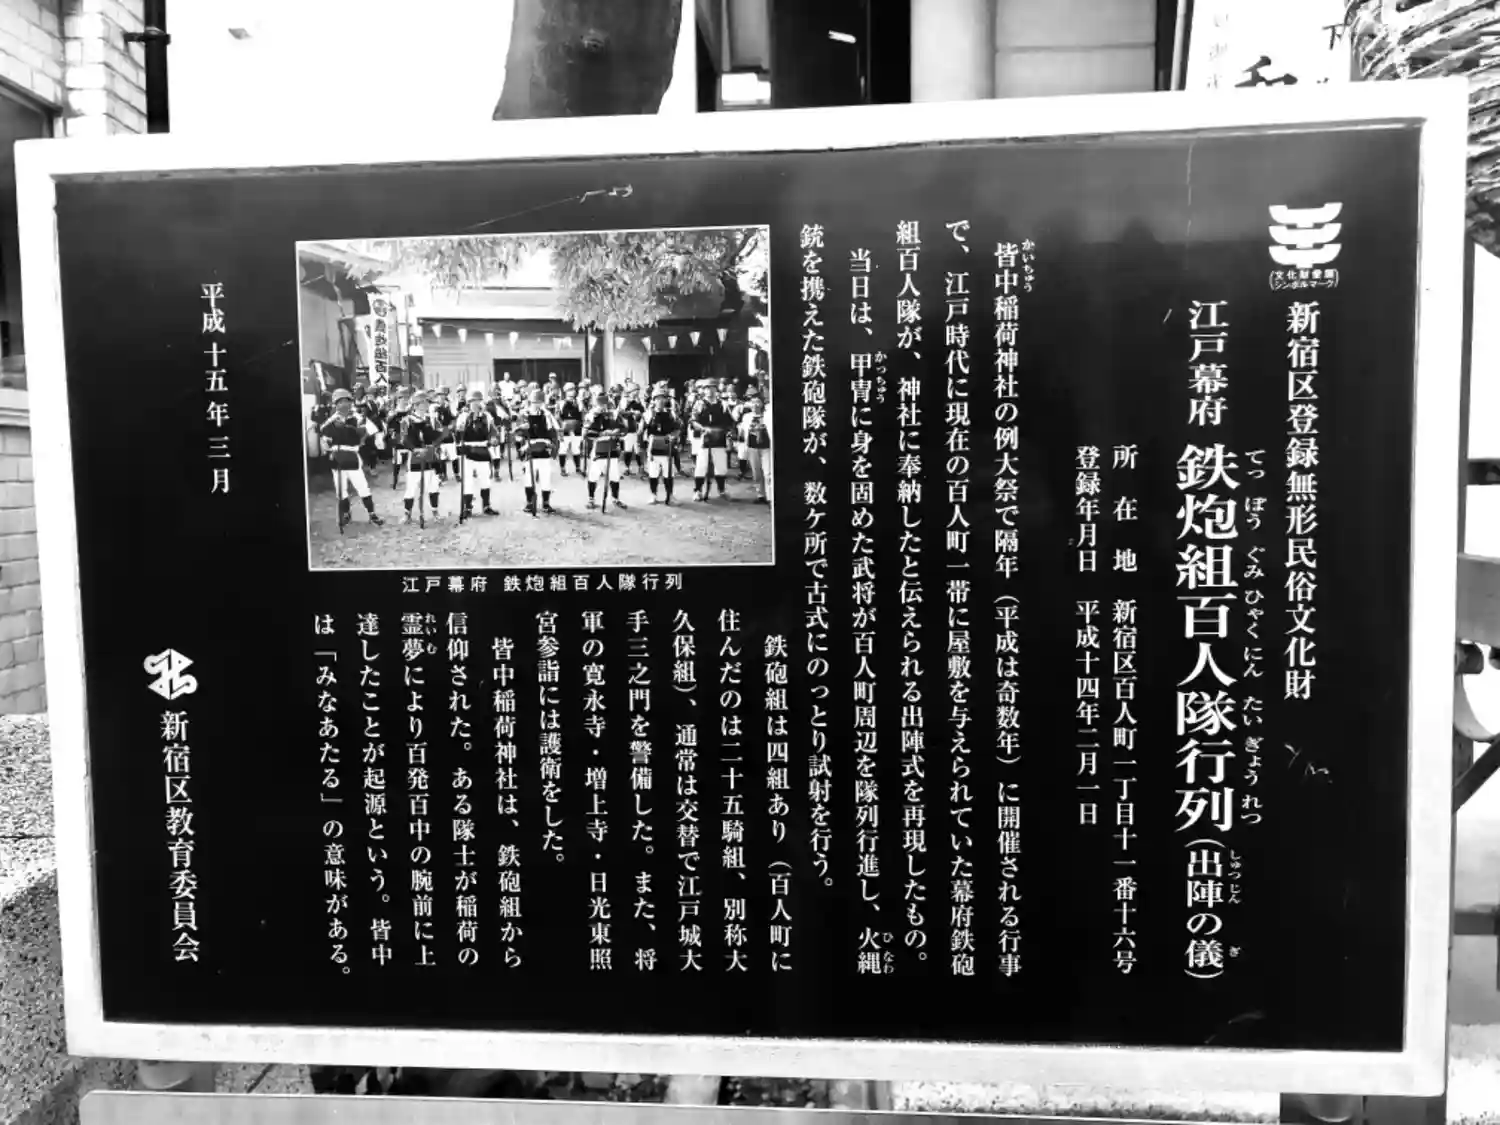 文化財愛護
シンボルマーク
新宿区登録無形民俗文化財
江戸幕府 鉄炮組百人隊行列(出陣の儀)
てっぽうぐみひゃくにんたいぎょうれつ しゅつじん ぎ
所在地 新宿区百人町一丁目十一番十六号
登録年月日 平成十四年二月一日
かいちゅう
皆中稲荷神社の例大祭で隔年（平成は奇数年）に開催される行事
で、江戸時代に現在の百人町一帯に屋敷を与えられていた幕府鉄砲
組百人隊が、神社に奉納したと伝えられる出陣式を再現したもの。
かっちゅう ひなわ
当日は、甲冑に身を固めた武将が百人町周辺を隊列行進し、火縄
銃を携えた鉄砲隊が、数ケ所で古式にのっとり試射を行う。
江戸幕府 鉄炮組百人隊行列
鉄砲組は四組あり（百人町に
住んだのは二十五騎組、別称大
久保組）、通常は交替で江戸城大
手三之門を警備した。また、将
軍の寛永寺・増上寺・日光東照
宮参詣には護衛をした。
皆中稲荷神社は、鉄砲組から
信仰された。ある隊士が稲荷の
れいむ
霊夢により百発百中の腕前に上
達したことが起源という。皆中
は「みなあたる」の意味がある。
平成十五年三月
新宿区教育委員会